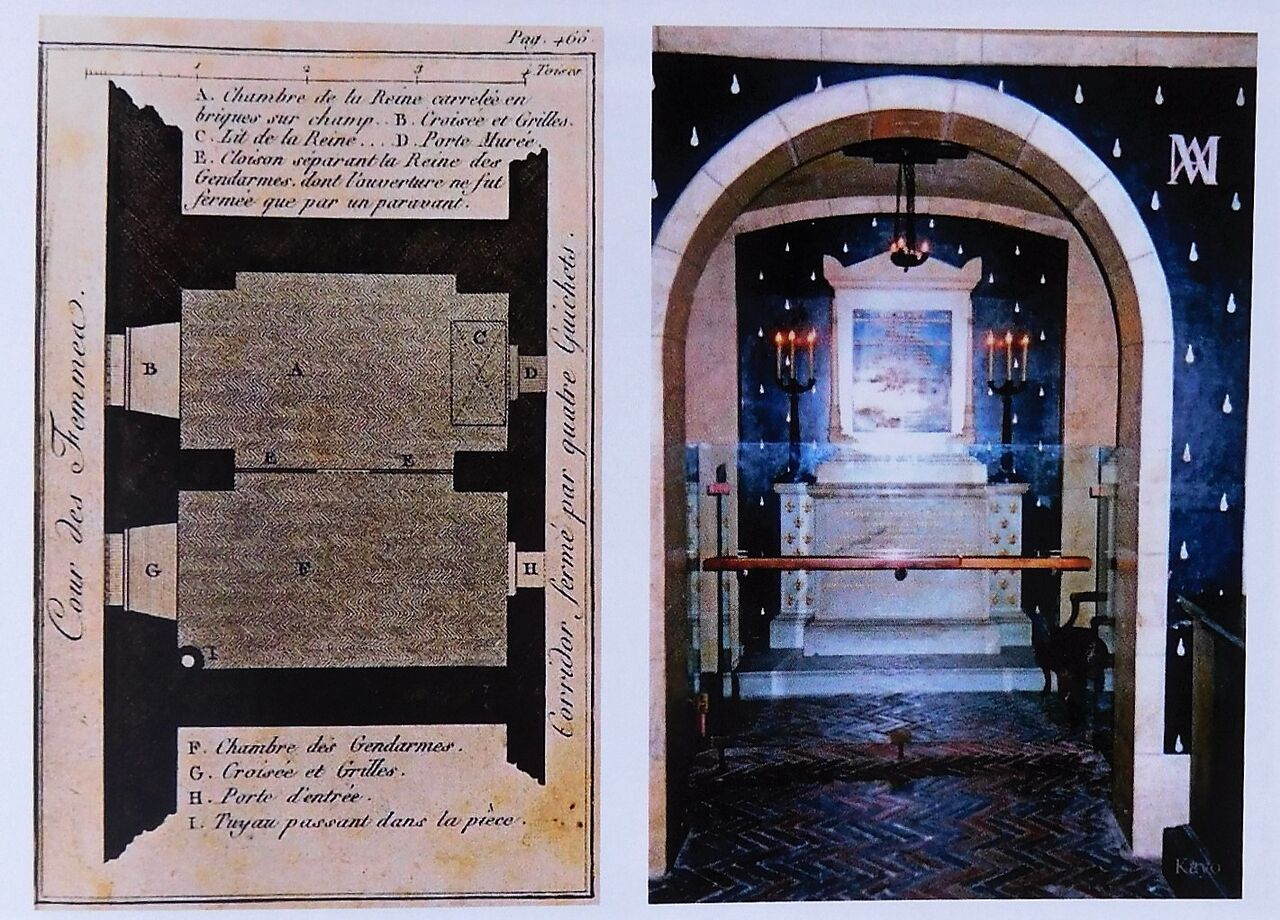 Pag. 466
1 2 3 4 Toises
A. Chambre de la Reine carrelée en
briques sur champ.. B. Croisée et Grilles.
C. Lit de la Reine... D. Porte Murée.
E. Cloison séparant la Reine des
Gendarmes. dont l'ouverture ne fut
fermée que par un paravant.
Cour des Femmes.
Corridor fermé par quatre Guichets.
C
B A D
E E
G F H
I
F. Chambre des Gendarmes.
G. Croisée et Grilles.
H. Porte d'entrée.
I. Tuyau passant dans la pièce.
MA
Kavo